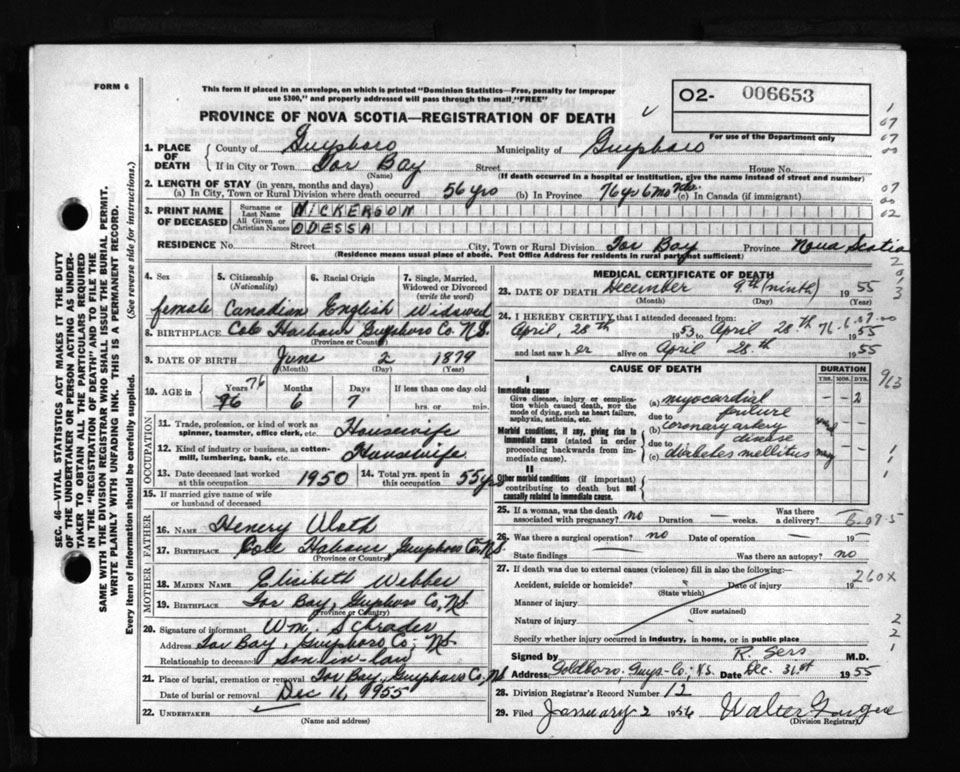 FORM 6
This form if placed in an envelope, on which is printed "Dominion Statistics—Free, penalty for improper
use $300," and properly addressed will pass through the mail "FREE"
PROVINCE OF NOVA SCOTIA—REGISTRATION OF DEATH
02- 006653
For use of the Department only
1. PLACE OF DEATH
County of Guysboro Municipality of Guysboro
If in City or Town Tor Bay Street House No.
(Name) (If death occurred in a hospital or institution, give the name instead of street and number)
2. LENGTH OF STAY (in years, months and days)
(a) In City, Town or Rural Division where death occurred 56 yrs (b) In Province 76 yrs 6 mo 7 ds. (c) In Canada (if immigrant)
3. PRINT NAME OF DECEASED
Surname or Last Name NICKERSON
All Given or Christian Names ODESSA
RESIDENCE No. Street City, Town or Rural Division Tor Bay Province Nova Scotia
(Residence means usual place of abode. Post Office Address for residents in rural parts not sufficient)
4. Sex female
5. Citizenship (Nationality) Canadian
6. Racial Origin English
7. Single, Married, Widowed or Divorced (write the word) Widowed
8. BIRTHPLACE Cole Harbour Guysboro Co. N.S.
(Province or Country)
9. DATE OF BIRTH June 2 1879
(Month) (Day) (Year)
10. AGE in Years 76 Months 6 Days 7 If less than one day old hrs. or min.
OCCUPATION
11. Trade, profession, or kind of work as spinner, teamster, office clerk, etc. Housewife
12. Kind of industry or business, as cotton-mill, lumbering, bank, etc. Housewife
13. Date deceased last worked at this occupation 1950 14. Total yrs. spent in this occupation 55 yrs
15. If married give name of wife or husband of deceased
FATHER
16. NAME Henery Uloth
17. BIRTHPLACE Cole Habour, Guysboro Co, N.S.
(Province or Country)
MOTHER
18. MAIDEN NAME Elizibeth Webber
19. BIRTHPLACE Tor Bay, Guysboro Co, N.S
(Province or Country)
20. Signature of informant Wm. Schrader
Address Tor Bay, Guysboro Co, N.S.
Relationship to deceased Son in-law
21. Place of burial, cremation or removal Tor Bay, Guysboro Co, N.S
Date of burial or removal Dec 11, 1955
22. UNDERTAKER
(Name and address)
MEDICAL CERTIFICATE OF DEATH
23. DATE OF DEATH December 9th (ninth) 1955
(Month) (Day) (Year)
24. I HEREBY CERTIFY that I attended deceased from:
April, 28th 1953 to April 28th 1955
and last saw her alive on April 28th 1955
CAUSE OF DEATH
DURATION
YRS. MOS. DYS.
I
Immediate cause
Give disease, injury or complication which caused death, not the mode of dying, such as heart failure, asphyxia, asthenia, etc.
(a) myocardial failure - - 2
due to
Morbid conditions, if any, giving rise to immediate cause (stated in order proceeding backwards from immediate cause).
(b) coronary artery disease
due to
(c) diabetes mellitus
II
Other morbid conditions (if important) contributing to death but not causally related to immediate cause.
25. If a woman, was the death associated with pregnancy? no Duration — weeks. Was there a delivery?
26. Was there a surgical operation? no Date of operation — 19
State findings — Was there an autopsy? no
27. If death was due to external causes (violence) fill in also the following:—
Accident, suicide or homicide? Date of injury 19
(State which)
Manner of injury
(How sustained)
Nature of injury
Specify whether injury occurred in industry, in home, or in public place
260X
Signed by R. Sers M.D.
Address Goldboro, Guys. Co; N.S. Date Dec. 31st 1955
28. Division Registrar's Record Number 12
29. Filed January 2 1956
(Division Registrar)
SEC. 46—VITAL STATISTICS ACT MAKES IT THE DUTY
OF THE UNDERTAKER OR PERSON ACTING AS UNDER-
TAKER TO OBTAIN ALL THE PARTICULARS REQUIRED
IN THE "REGISTRATION OF DEATH" AND TO FILE THE
SAME WITH THE DIVISION REGISTRAR WHO SHALL ISSUE THE BURIAL PERMIT.
WRITE PLAINLY WITH UNFADING INK. THIS IS A PERMANENT RECORD.
Every item of information should be carefully supplied. (See reverse side for instructions.)